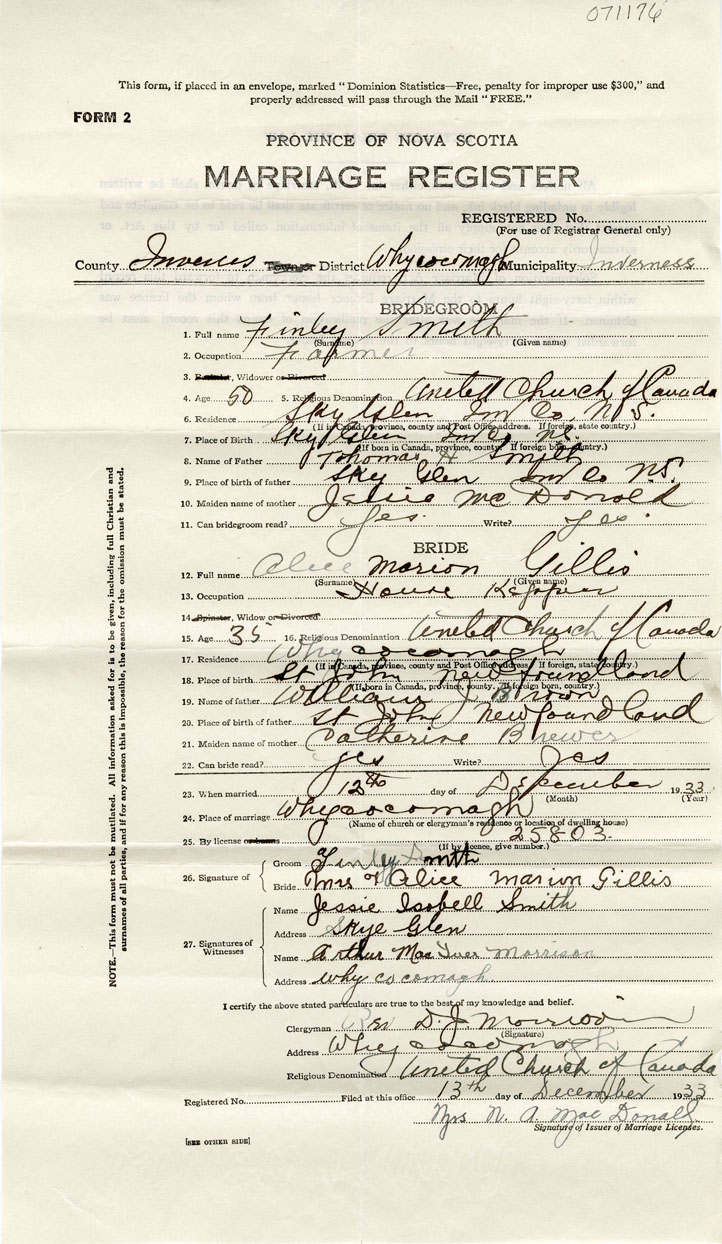 071176
This form, if placed in an envelope, marked "Dominion Statistics—Free, penalty for improper use $300," and
properly addressed will pass through the Mail "FREE."
FORM 2
PROVINCE OF NOVA SCOTIA
MARRIAGE REGISTER
REGISTERED No.
(For use of Registrar General only)
County Inverness Town or District Whycocomagh Municipality Inverness
BRIDEGROOM
1. Full name Finley Smith
(Surname) (Given name)
2. Occupation Farmer
3. Bachelor, Widower or Divorced
4. Age 50 5. Religious Denomination United Church of Canada
6. Residence Sky Glen Inv Co. N.S.
(If in Canada, province, county and Post Office address. If foreign, state country.)
7. Place of Birth Sky Glen Inv Co N.S.
(If born in Canada, province, county. If foreign born, country.)
8. Name of Father Thomas H Smith
9. Place of birth of father Sky Glen Inv Co N.S.
10. Maiden name of mother Jessie McDonald
11. Can bridegroom read? Yes. Write? Yes.
BRIDE
12. Full name Alice Marion Gillis
(Surname) (Given name)
13. Occupation House Keeper
14. Spinster, Widow or Divorced
15. Age 35 16. Religious Denomination United Church of Canada
17. Residence Whycocomagh
(If in Canada, province, county and Post Office address. If foreign, state country.)
18. Place of birth St John Newfoundland
(If born in Canada, province, county. If foreign born, country.)
19. Name of father William J. Brown
20. Place of birth of father St John Newfoundland
21. Maiden name of mother Catherine Brewer
22. Can bride read? yes Write? Yes
23. When married 12th day of December 1933
(Month) (Year)
24. Place of marriage Whycocomagh
(Name of church or clergyman's residence or location of dwelling house)
25. By license or banns 25803
(If by licence, give number.)
26. Signature of
Groom Finley Smith
Bride Mrs Alice Marion Gillis
27. Signatures of Witnesses
Name Jessie Isobell Smith
Address Skye Glen
Name Arthur MacIver Morrison
Address Whycocomagh
I certify the above stated particulars are true to the best of my knowledge and belief.
Clergyman Rev D. J. Morrison
(Signature)
Address Whycocomagh
Religious Denomination United Church of Canada
Registered No. Filed at this office 13th day of December 1933
Mrs N. A. MacDonald
Signature of Issuer of Marriage Licenses.
[SEE OTHER SIDE]
NOTE.—This form must not be mutilated. All information asked for is to be given, including full Christian and
surnames of all parties, and if for any reason this is impossible, the reason for the omission must be stated.